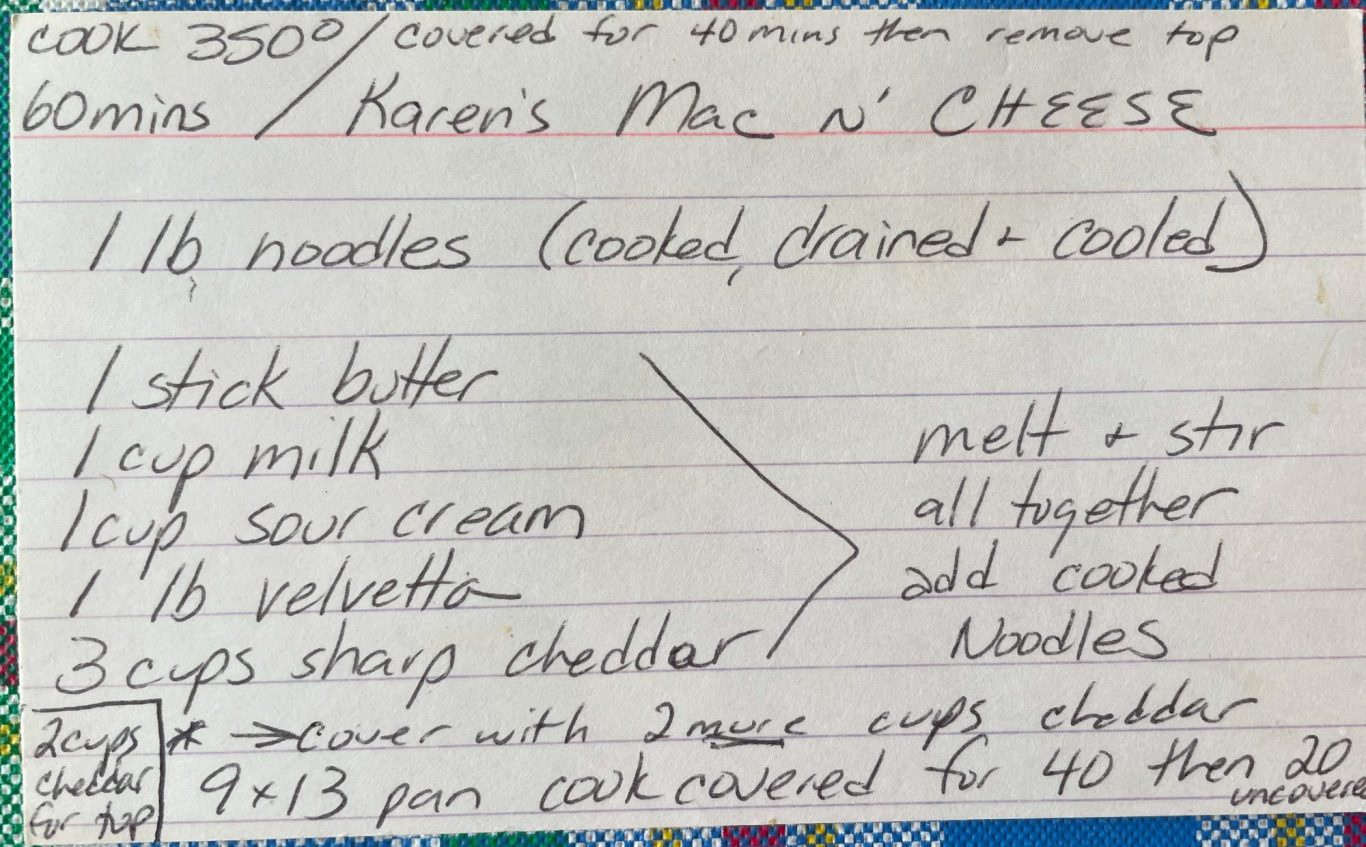 cook 350° / covered for 40 mins then remove top
60 mins / Karen's Mac N' CHEESE
1 lb noodles (cooked, drained + cooled)
1 stick butter
1 cup milk
1 cup sour cream
1 lb velvetta
3 cups sharp cheddar
melt + stir
all together
add cooked
Noodles
2 cups
cheddar
for top
* → cover with 2 more cups cheddar
9x13 pan cook covered for 40 then 20
uncovered